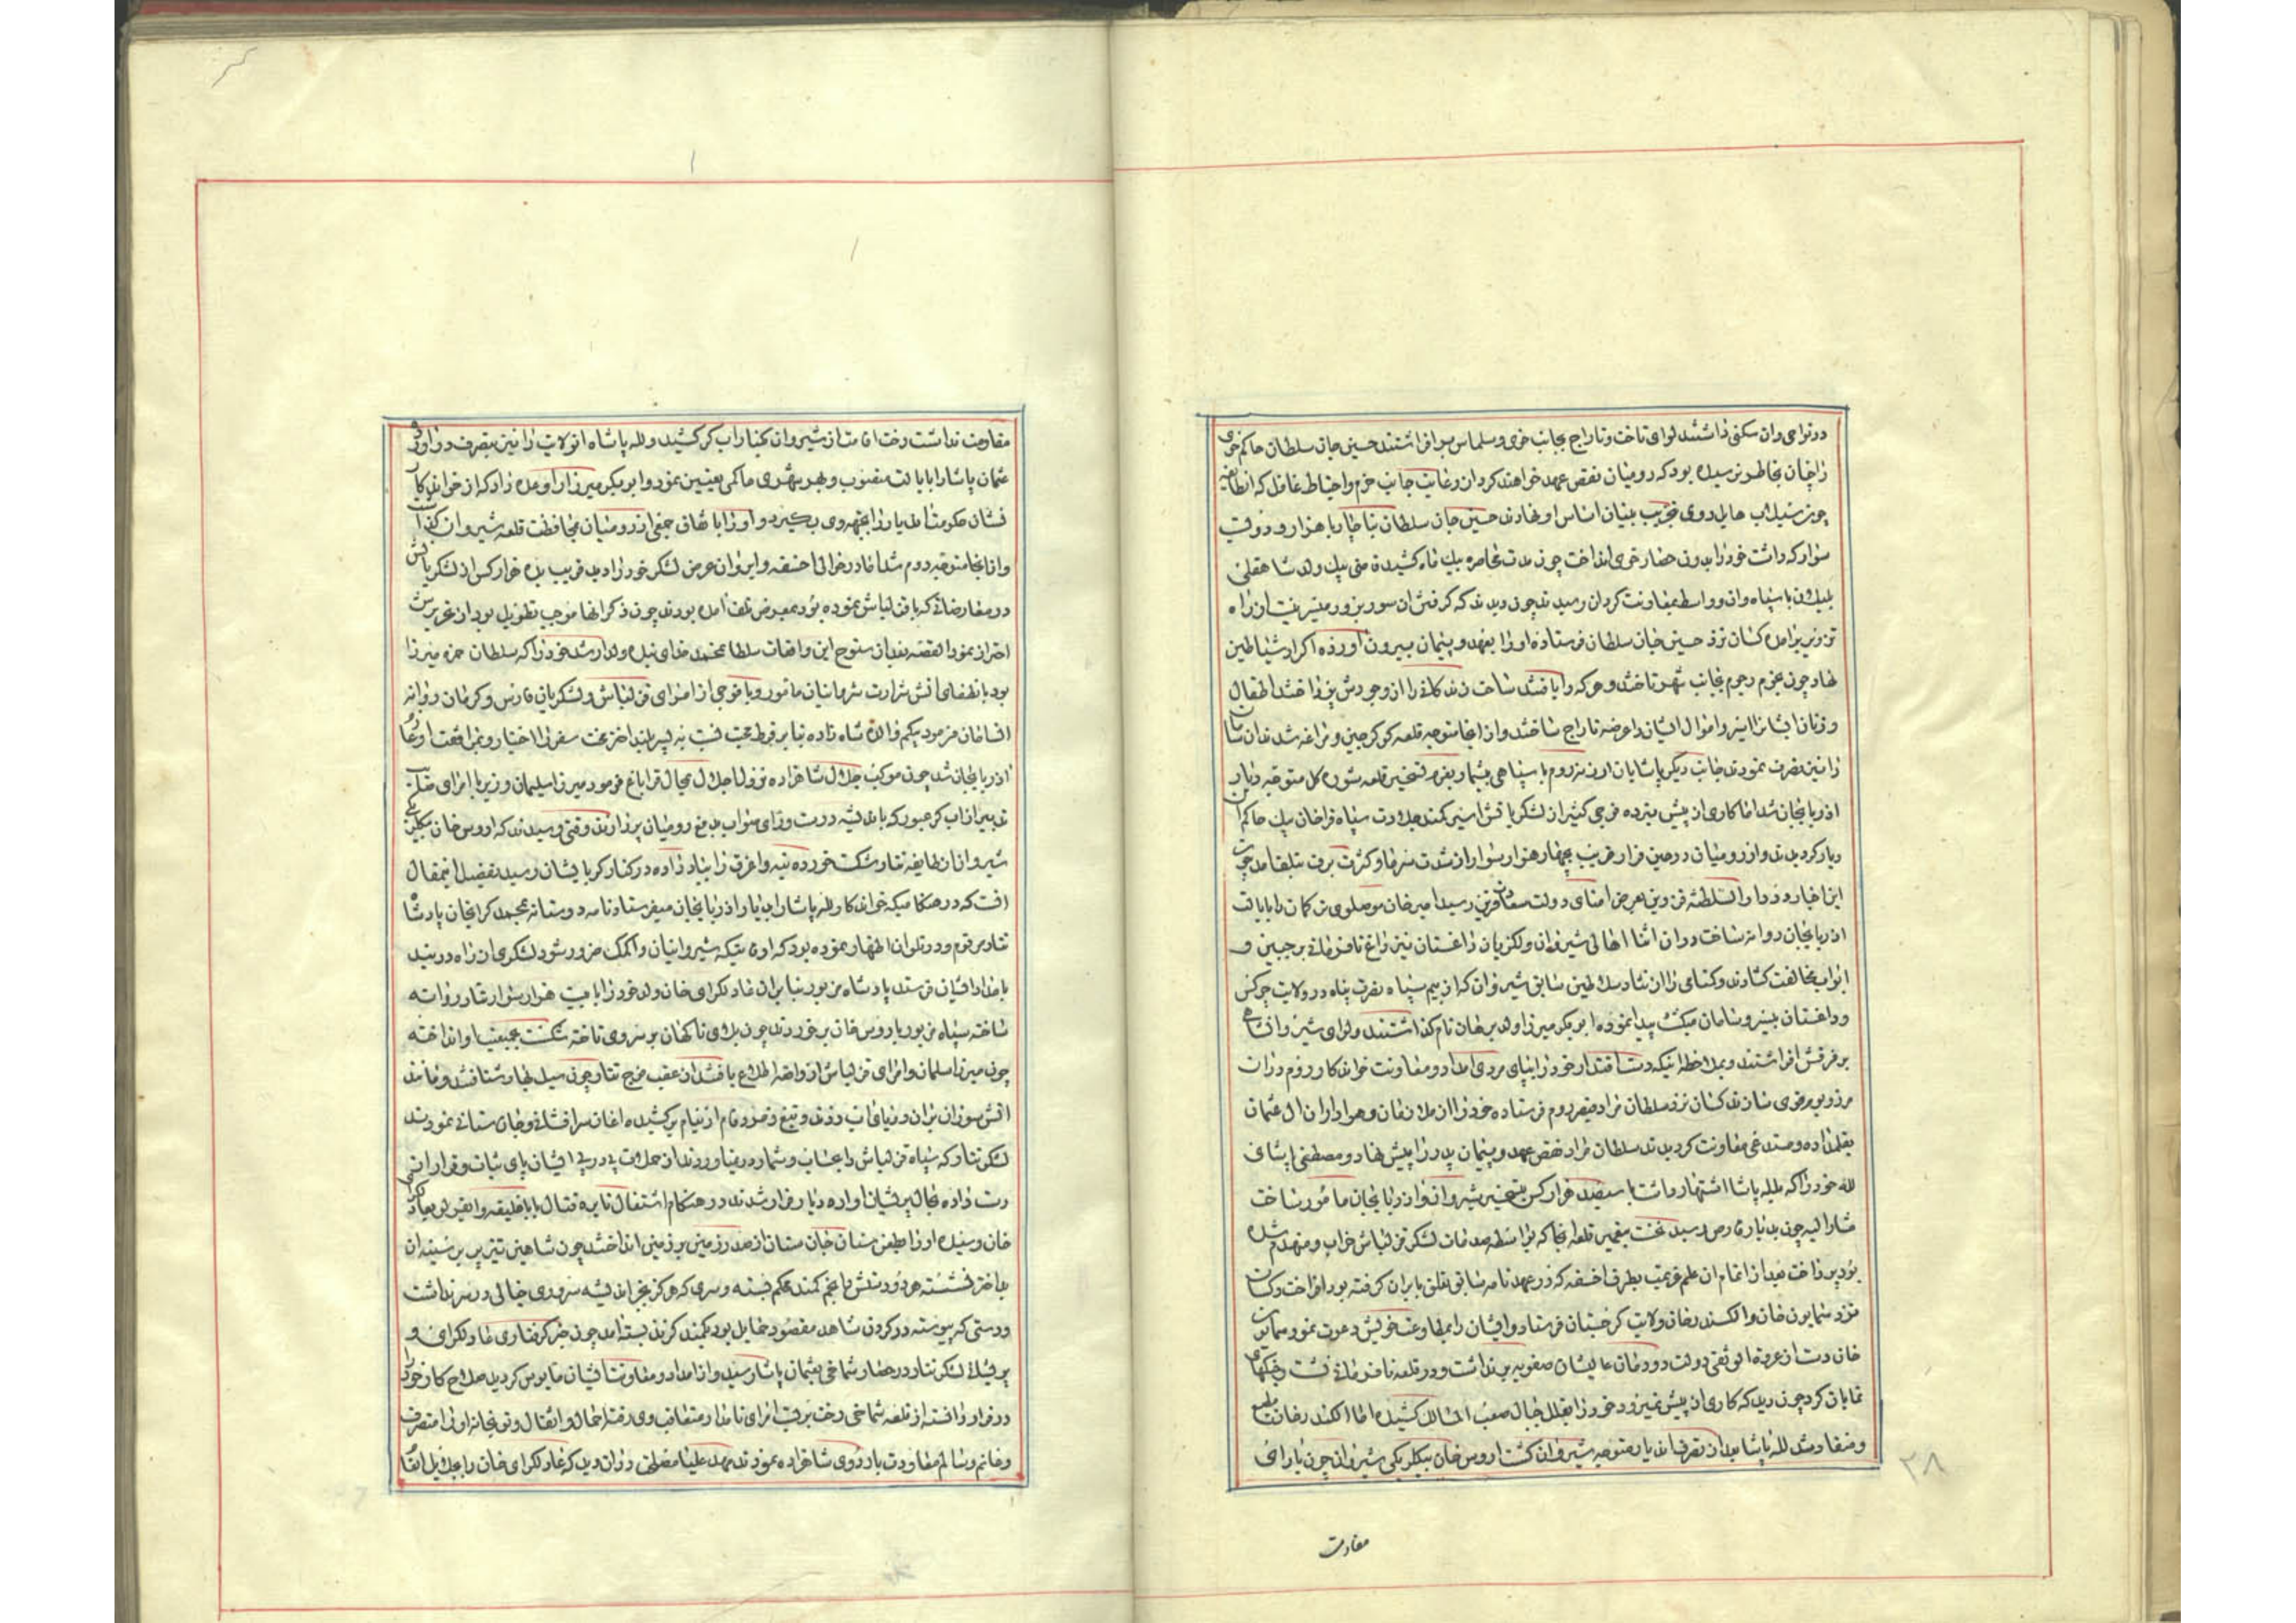 در نواحی وان سکنی داشتند لوای تاخت و تاراج بجانب خوی و سلماس برافراشتند حسین خان سلطان حاکم خوی
را چنان بخاطر نرسیده بود که رومیان نقض عهد خواهند کرد از رعایت جانب حزم و احتیاط غافل که انطایفه
چون سیلاب هایل روی بتخریب بنیان اساس او نهادند حسین خان سلطان بناچار با هزار و دویست
سوار که داشت خود را بدرون حصار خوی انداخت چون مدت محاصره بیک ماه کشید قتی بیک ولد شاهقلی
بلیلان با سپاه وان و واسط بمعاونت کردان رسیدند چون دیدند که گرفتن ان سور بزور میسر نیست از راه
تزویر برامده کسان نزد حسین خان سلطان فرستاده او را بعهد و پیمان بیرون آورده اکراد شیاطین
نهاد چون عزم رجوم بجانب شهر تاختند و هر که را یافتند ساختند کانه را از وجودش پرداختند اطفال
و زنان ایشانرا اسیر و اموال ایشان را عرضه تاراج ساختند و از انجا متوجه قلعه کوکرجین و مراغه شدند ان
را نیز تصرف نمودند جانب دیگر پاشایان ارزنه روم با سپاهی بیشمار بعزم تسخیر قلعه شوره کل متوجه دیار
اذربایجان شد اما کاری از پیش نبرده فوجی کثیر از لشکریانش اسیر کمند جلادت سپاه قراخان بیک حاکم ان
دیار کردیدند و از رومیان در حین فرار قریب بچهار هزار سوار از شدت سرما و کثرت برف تلف امد چون
این اخبار در دارالسلطنه قزوین بعرض امنای دولت سعادت قرین رسید امیر خان موصلوی ترکمان را بایالت
اذربایجان روانه ساخت در ان اثنا اهالی شیروان و لکزیان داغستان نیز داغ نافرمانی بر جبین و
ابواب مخالفت کشادند و کسامی را از نژاد سلاطین سابق شیروان که از بیم سپاه نصرت پناه در ولایت چرکس
و داغستان بیسر و سامان میکشت پیدا نموده ابو بکر میرزا ولد برهان نام کذاشتند و لوای شیروانشاهی
بر فرقش افراشتند و بملاحظه اینکه دست اقتدار خود را بپای مردی امداد و معاونت خواندکار روم دران
مرز و بوم قوی سازند کسان نزد سلطان مراد قیصر روم فرستاده خود را از ملازمان و هواداران ال عثمان
بقلم داده و مستدعی معاونت کردیدند سلطان مراد نقض عهد و پیمان پدر را پیش نهاد و مصطفی پاشای
لله خود را که بلله پاشا اشتهار داشت با سیصد هزار کس بتسخیر شیروان و اذربایجان مامور ساخت
مشارالیه چون بدیار قارص رسید نخست بتعمیر قلعه انجا که بواسطه صدمات لشکر قزلباش خراب و منهدم شده
بود پرداخت بعد از اتمام ان علم عزیمت بطرف اخسقه که در عهدنامه سابق تعلق بایران گرفته بود افراخت و کسان
نزد سمایون خان و الکسندر خان ولات کرجستان فرستاد و ایشان را بمطاوعت خویش دعوت نمود سمایون
خان دست از عروة الوثقی دولت دودمان عالیشان صفویه بر نداشت و در قلعه نافرمانی نشست و جنکهای
نمایان کرد چون دید که کاری از پیش نمیرود خود را بقلل جبال صعب المسالک کشیده اما الکسندر خان مطیع
و منقاد شد لله پاشا بعد از تصرف ان دیار متوجه شیروان کشت اروس خان بیکلربیکی شیروان چون یارای
مقاومت
۲۸
مقاومت نداشت رخت اقامت از شیروان بکنار اب کر کشید و لله پاشا ان ولایت را نیز بتصرف دراورد و
عثمان پاشا را بایالت منصوب و بهر شهری حاکمی تعیین نمود و ابو بکر میرزا را وعده داد که از خواندکار
نشان حکومت ان دیار را بجهه وی بگیرد و او را با تفاق جمعی از رومیان بمحافظت قلعه شیروان کذاشت
و از انجا متوجه روم شد اما در حوالی اخسقه و ایروان عرض لشکر خود را دید قریب بده هزار کس از لشکریانش
در معارضاتی که با قزلباش نموده بود بمعرض تلف امده بودند چون ذکر انها موجب تطویل بود از تحریرش
احتراز نمود القصه بعد از سنوح این واقعات سلطان محمد خدای نبده ولد ارشد خود را که سلطان حمزه میرزا
بود با نطفای اتش شرارت عثمانیان مامور و با فوجی از امرای قزلباش و لشکریان فارس و کرمان روانه
انسامان فرمود بیکم والده شاه زاده بنا بر فرط محبت نسبت به پسر بلند اختر بخت سفر را اختیار و بمرافقت او عازم
اذربایجان شد چون موکب جلال شاهزاده نزول اجلال بمحال قراباغ فرمود میرزا سلیمان وزیر با امرای صایب
تدبیر از اب کر عبور که باندیشه درست و رای صواب بدفع رومیان پردازند وقتی رسیدند که اروس خان بیکلربیکی
شیروان از طایفه تتار شکست خورده بنه و اغرق را بباد داده در کنار کر بایشان رسید تفصیل اینمقال
انست که در هنکامیکه خواندکار لله پاشا را بدیار اذربایجان میفرستاد نامه دوستانه بمحمد کرای خان پادشاه
تتار برقم و در تلو ان اظهار نموده بود که اوقاتیکه شیروانیان را کمک ضرور شود لشکری از راه دربند
بامداد ایشان فرستد پادشاه مزبور بنا بر ان عادلکرای خان ولد خود را با بیست هزار سوار تتار روانه
ساخته سپاه مزبور باروس خان برخوردند چون بلای ناکهان بر سر وی تاخته شکست بجمعیت او انداخته
چون میرزا سلمان و امرای قزلباش از واقعه اطلاع یافتند از عقب فوج تتار چون سیل بهار شتافتند و مانند
اتش سوزان بران دریای اب زدند و تیغ و خنجر و انتقام از نیام برکشیده اغاز سرافشانی و جان ستانی نمودند
لشکر تتار که سپاه قزلباش را بحساب و شمار در نیاوردند از حملات پی در پی ایشان پای ثبات و قرار از
دست داده بحال پریشان اواره دیار فرار شدند در هنکام اشتعال نایره قتال بابا خلیفه والفیر بعادلکرای
خان رسیده او را بطعن سنان جان ستان از صدر زین بر زمین انداختند چون شاهین تیز پر بر سینه ان
بد اختر نشسته هر دو دستش را بخم کمند محکم بسته و سری که هرکز بجز اندیشه سروری خیالی در سر نداشت
و دستی که پیوسته در کردن شاهد مقصود حمایل بود بکمند کزند بسته امد چون خبر کرفتاری عادلکرای و
پریشانی لشکر تتار در حصار شماخی بعثمان پاشا رسید و از امداد و معاونت ایشان مایوس کردید صلاح کار خود را
در فرار دانسته از قلعه شماخی رخت بر بست امرای نامدار متعاقب وی رفته احمال و اثقال و توپخانه او را متصرف
و غانم و سالم معاودت باردوی شاهزاده نمودند مهد علیا مصلحت دران دید که عادلکرای خان را